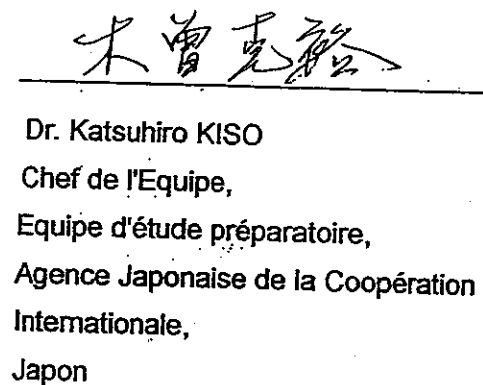 木曽克裕
Dr. Katsuhiro KISO
Chef de l'Equipe,
Equipe d'étude préparatoire,
Agence Japonaise de la Coopération
Internationale,
Japon